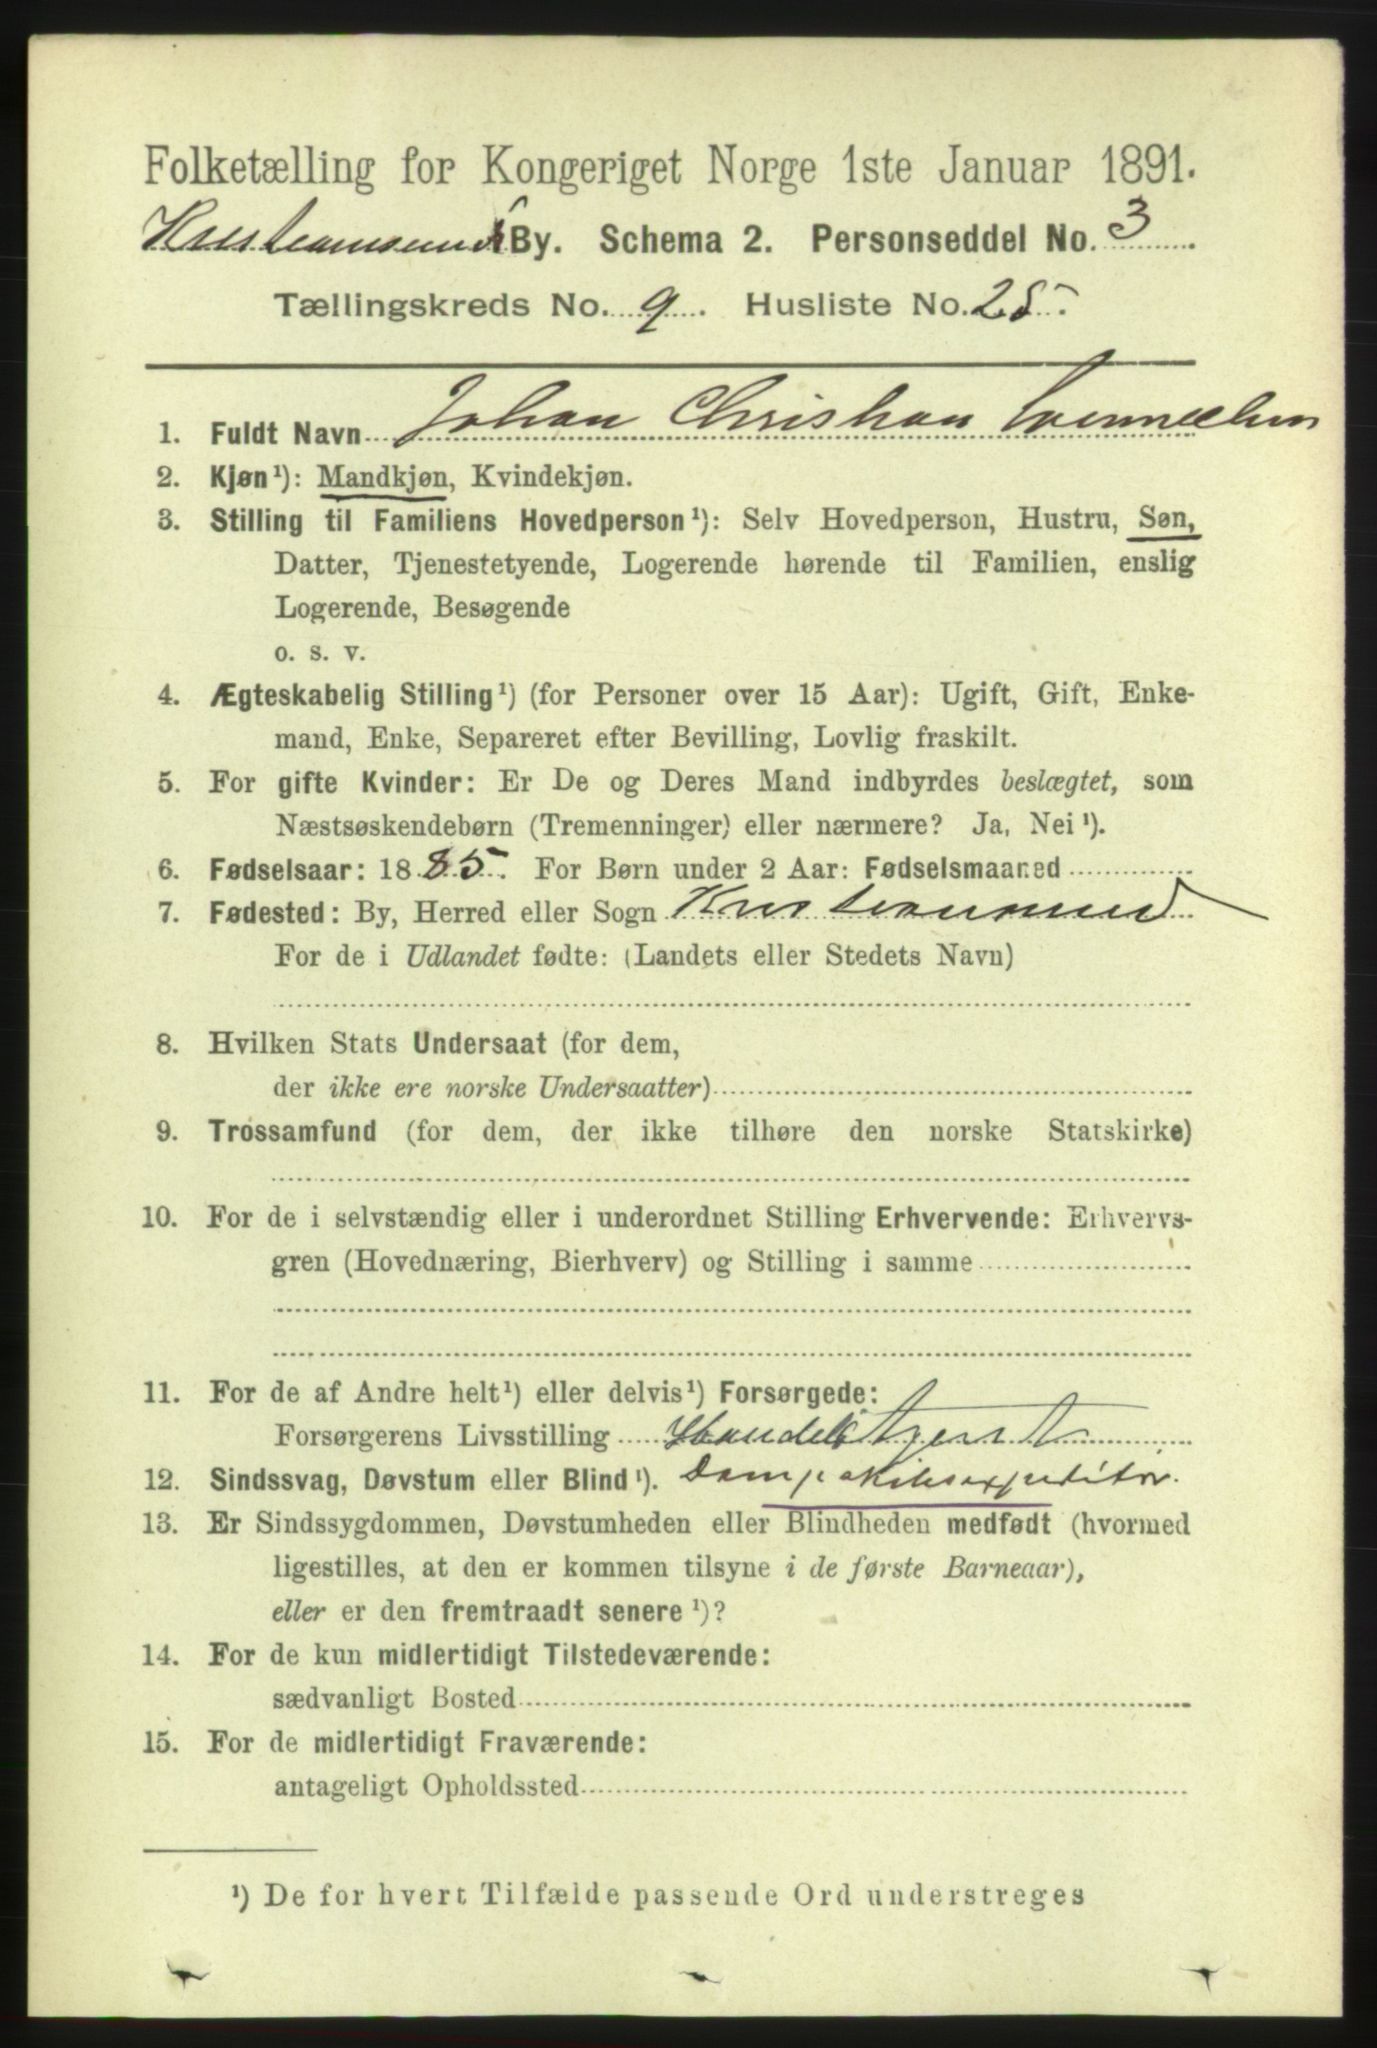 Folketælling for Kongeriget Norge 1ste Januar 1891.
Kristianssund By. Schema 2. Personseddel No. 3
Tællingskreds No. 9. Husliste No. 25.
1. Fuldt Navn Johan Christian
2. Kjøn¹): Mandkjøn, Kvindekjøn.
3. Stilling til Familiens Hovedperson¹): Selv Hovedperson, Hustru, Søn,
Datter, Tjenestetyende, Logerende hørende til Familien, enslig
Logerende, Besøgende
o. s. v.
4. Ægteskabelig Stilling¹) (for Personer over 15 Aar): Ugift, Gift, Enke-
mand, Enke, Separeret efter Bevilling, Lovlig fraskilt.
5. For gifte Kvinder: Er De og Deres Mand indbyrdes beslægtet, som
Næstsøskendebørn (Tremenninger) eller nærmere? Ja, Nei¹).
6. Fødselsaar: 1885. For Børn under 2 Aar: Fødselsmaaned
7. Fødested: By, Herred eller Sogn Kristianssund
For de i Udlandet fødte: (Landets eller Stedets Navn)
8. Hvilken Stats Undersaat (for dem,
der ikke ere norske Undersaatter)
9. Trossamfund (for dem, der ikke tilhøre den norske Statskirke)
10. For de i selvstændig eller i underordnet Stilling Erhvervende: Erhvervs-
gren (Hovednæring, Bierhverv) og Stilling i samme
11. For de af Andre helt¹) eller delvis¹) Forsørgede:
Forsørgerens Livsstilling Handels Agent
12. Sindssvag, Døvstum eller Blind¹). Dampskibsexpeditør.
13. Er Sindssygdommen, Døvstumheden eller Blindheden medfødt (hvormed
ligestilles, at den er kommen tilsyne i de første Barneaar),
eller er den fremtraadt senere¹)?
14. For de kun midlertidigt Tilstedeværende:
sædvanligt Bosted
15. For de midlertidigt Fraværende:
antageligt Opholdssted
¹) De for hvert Tilfælde passende Ord understreges